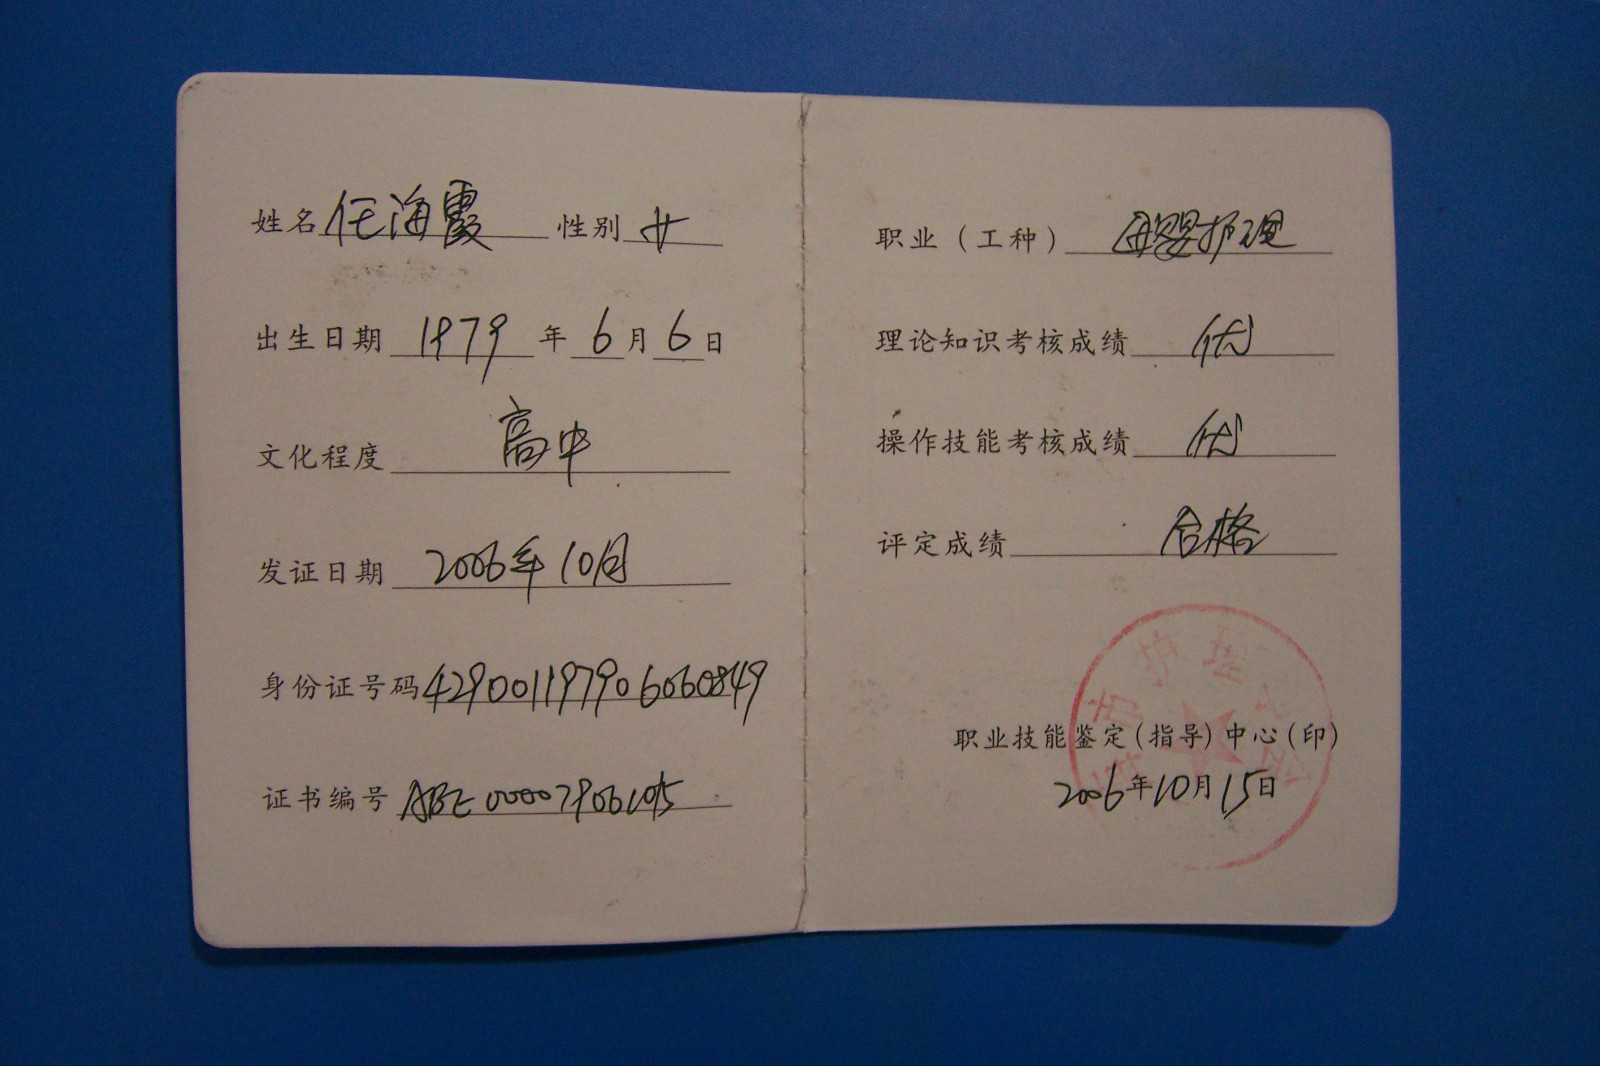 姓名 任海霞 性别 女
出生日期 1979 年 6 月 6 日
文化程度 高中
发证日期 2006年10月
身份证号码 429001197906060849
证书编号
职业（工种） 母婴护理
理论知识考核成绩 优
操作技能考核成绩 优
评定成绩 合格
护理
职业技能鉴定(指导)中心(印)
2006年10月15日